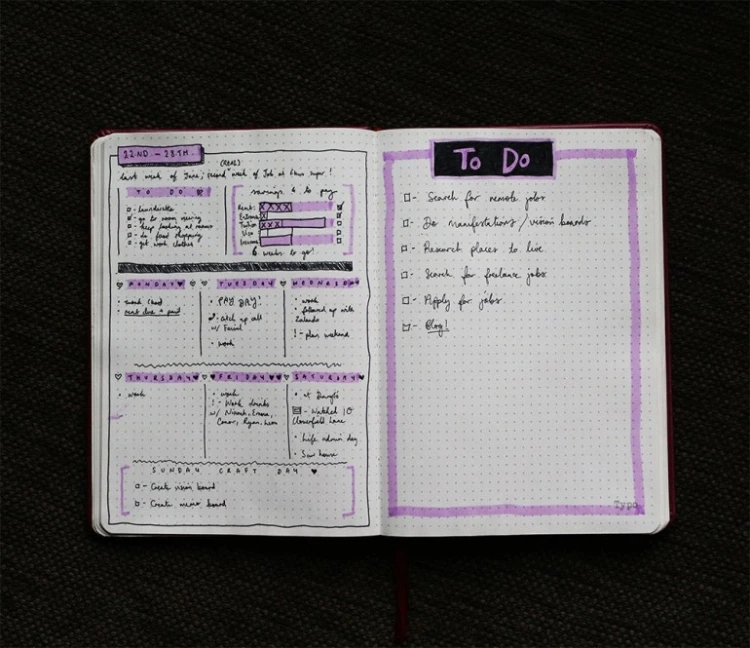 22ND - 28TH
(REAL)
last week of June, second week of Job at this super!
TO DO
- launderette
- go to room viewing
- keep looking at rooms
- do food shopping
- get work clothes
savings & to pay
Rent
Tuition
Visa
6 weeks to go!
MONDAY
TUESDAY
WEDNESDAY
• PAY DAY!
- catch up call
• work
• work
• followed up with
Zalando
! - plan weekend
THURSDAY
FRIDAY
SATURDAY
• work
• work
! - Work drinks
• Watched 10
Cloverfield Lane
• Life admin day
SUNDAY CRAFT DAY
- Create vision board
- Create memo board
To Do
- Search for remote jobs
- Do manifestations / vision boards
- Research places to live
- Search for freelance jobs
- Apply for jobs
- Blog!
Typo